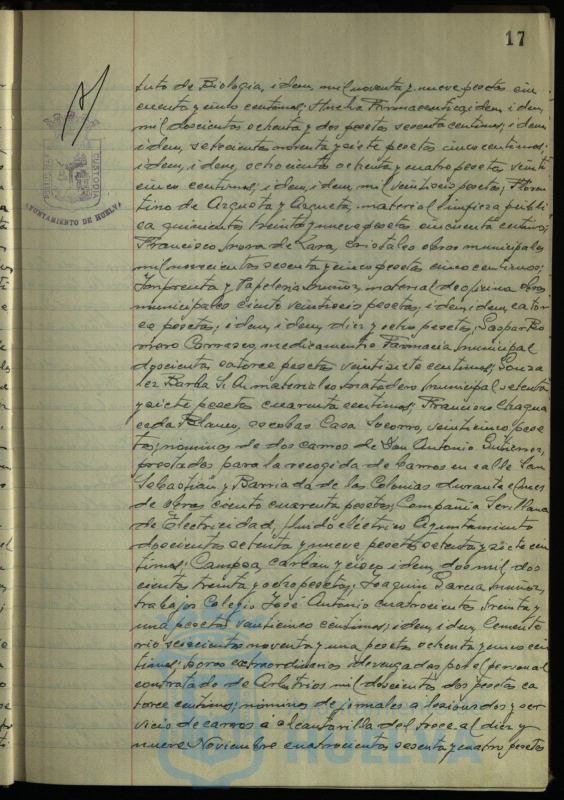 17
tuto de Biologia, idem, mil noventa y nueve pesetas cin
cuenta y cinco centimos; Farmaceutica, idem, idem,
mil doscientas ochenta y dos pesetas sesenta centimos; idem
idem, setecientas noventa y siete pesetas cinco centimos;
idem, idem, ochocientas ochenta y cuatro pesetas veinti
cinco centimos; idem, idem, mil veintiseis pesetas; Floren
tino de Azqueta y Azqueta, material limpieza públi
ca quinientas treinta y nueve pesetas cincuenta centimos;
Francisco de Lara, cristales obras municipales
mil novecientas sesenta y cinco pesetas cinco centimos;
Imprenta y Papeleria Muñoz, material de oficina obras
municipales ciento veintiseis pesetas; idem, idem, cator
ce pesetas; idem, idem, diez y ocho pesetas; Gaspar Ro
mero Carrasco medicamentos Farmacia municipal
doscientas catorce pesetas veintisiete centimos; Gonza
lez Barba S. A. materiales matadero municipal setenta
y siete pesetas cuarenta centimos; Francisco Chagua
ceda Polanco, escobas Casa Socorro, veinticinco pese
tas; nominas de dos carros de Don Antonio Gutierrez,
prestados para la recogida de barros en calle San
Sebastian y Barriada de las Colonias durante el mes
de obras ciento cuarenta pesetas; Compañia Sevillana
de Electricidad, fluido electrico Ayuntamiento
doscientas setenta y nueve pesetas setenta y siete cen
timos; Campsa, carbon y cisco, idem, dos mil dos
cientas treinta y ocho pesetas; Joaquin Garcia Muñoz,
trabajos Colegio José Antonio cuatrocientas treinta y
una pesetas veinticinco centimos; idem, idem, Cemente
rio seiscientas noventa y una peseta ochenta y cinco cen
timos; horas extraordinarias devengadas por el personal
contratado de Arbitrios mil doscientas dos pesetas ca
torce centimos; nominas de jornales a lesionados y ser
vicio de carros a alcantarilla del trece al diez y
nueve Noviembre cuatrocientas sesenta y cuatro pesetas
CUSTODIA
AYUNTAMIENTO DE HUELVA
HUELVA